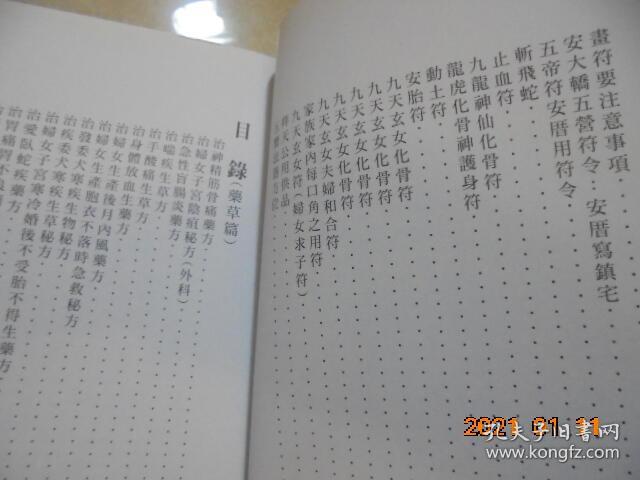 畫符要注意事項
安大轎五營符令：安厝寫鎮宅
五帝符安厝用符令
斬飛蛇
止血符
九龍神仙化骨符
龍虎化骨神護身符
動土符
安胎符
九天玄女化骨符
九天玄女化骨符
九天玄女化骨符
九天玄女夫婦和合符
家族家內每口角之用符
九天玄女符（婦女求子符）
拜天公用供品
目錄（藥草篇）
治神精筋骨痛藥方
治婦女子宮陰疽秘方（外科）
治急性盲腸炎藥方
治喘疾生草方
治手酸痛生草方
治身體放血生藥方
治婦女生產後月內風藥方
治婦女生產胞衣不落時急救秘方
治發委犬寒疾生物秘方
治疾委犬寒疾生草秘方
治婦女子宮寒冷婚後不受胎不得生藥方
治愛臥蛇疾藥方
治胃痛胃
2021.01.11
孔夫子旧書网
www.kongfz.com